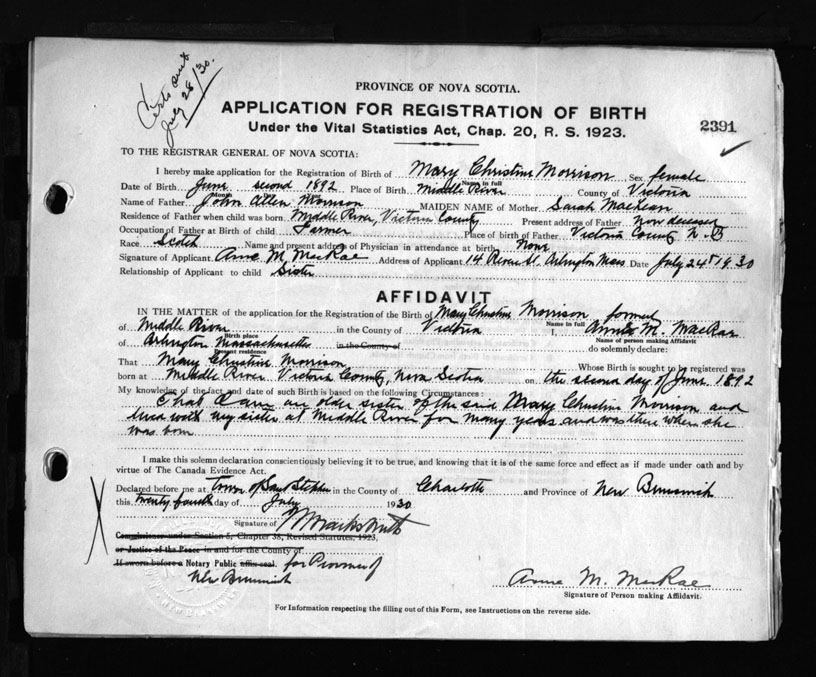 Certs sent
July 28/30.
PROVINCE OF NOVA SCOTIA.
APPLICATION FOR REGISTRATION OF BIRTH
2391
Under the Vital Statistics Act, Chap. 20, R. S. 1923.
TO THE REGISTRAR GENERAL OF NOVA SCOTIA:
I hereby make application for the Registration of Birth of Mary Christine Morrison Sex female
Name in full
Date of Birth June second 1892 Place of Birth Middle River County of Victoria
Month
Name of Father John Allen Morrison MAIDEN NAME of Mother Sarah MacLean
Residence of Father when child was born Middle River, Victoria County Present address of Father Now deceased
Occupation of Father at Birth of child Farmer Place of birth of Father Victoria County
Race Scotch Name and present address of Physician in attendance at birth None
Signature of Applicant Anne M. MacRae Address of Applicant 14 Revere St. Arlington Mass Date July 24th 1930
Relationship of Applicant to child Sister
AFFIDAVIT
IN THE MATTER of the application for the Registration of the Birth of Mary Christine Morrison formerly
Name in full
of Middle River in the County of Victoria I, Annie M. MacRae
Birth place
Name of person making Affidavit
of Arlington Massachusetts in the County of do solemnly declare:
Present residence
That Mary Christine Morrison Whose Birth is sought to be registered was
born at Middle River Victoria County, Nova Scotia on the second day of June 1892
My knowledge of the fact and date of such Birth is based on the following Circumstances:
That I am an older sister of the said Mary Christine Morrison and
lived with my sister at Middle River for many years and was there when she
was born
I make this solemn declaration conscientiously believing it to be true, and knowing that it is of the same force and effect as if made under oath and by
virtue of The Canada Evidence Act.
Declared before me at town of Saint Stephen in the County of Charlotte and Province of New Brunswick
this twenty fourth day of July 1930
Signature of
Commissioner under Section 5, Chapter 38, Revised Statutes, 1923,
or Justice of the Peace in and for the County of
If sworn before a Notary Public affix seal. for Province of
New Brunswick
Anne M. MacRae
Signature of Person making Affidavit.
For Information respecting the filling out of this Form, see Instructions on the reverse side.